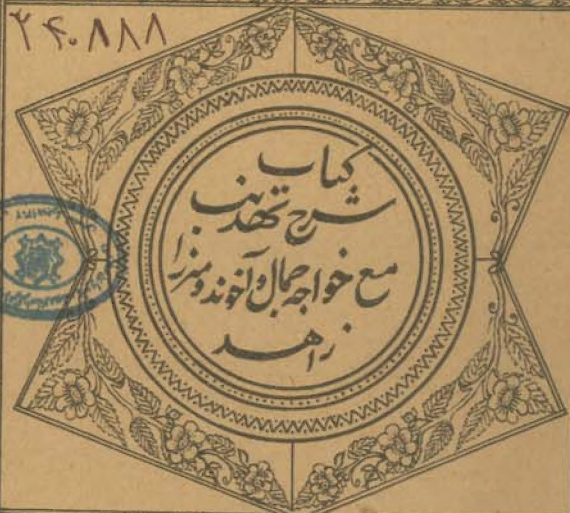 ۲۴۰۸۸۸
کتاب
شرح تهذیب
مع خواجه جمال و آخوند و میرزا
زاهد